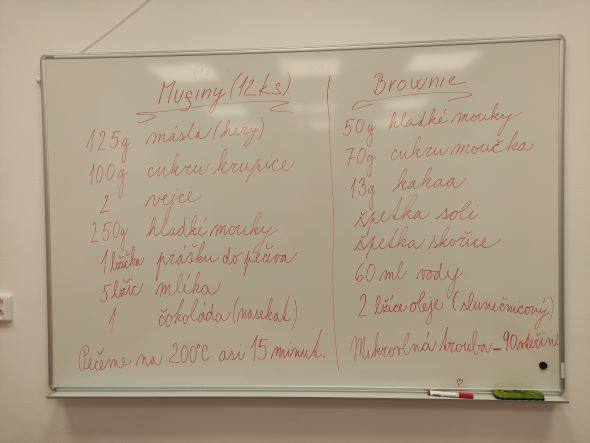 Muffiny (12 ks)
125g másla (hery)
100g cukru krupice
2 vejce
250g hladké mouky
1 lžička prášku do pečiva
5 lžic mléka
1 čokoláda (nasekat)
Pečeme na 200°C asi 15 minut.
Brownie
50g hladké mouky
70g cukru moučka
13g kakaa
špetka soli
špetka skořice
60 ml vody
2 lžíce oleje (slunečnicový)
Mikrovlná trouba - 90 vteřin